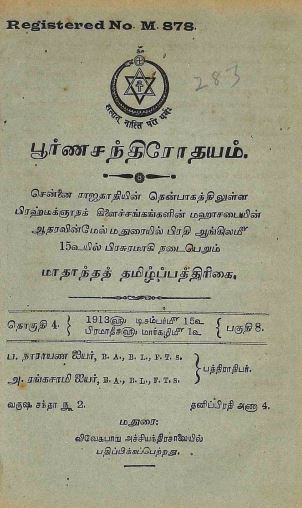 Registered No. M. 878.
283
सत्यान् नास्ति परो धर्मः
பூர்ணசந்திரோதயம்.
சென்னை ராஜதானியின் தென்பாகத்திலுள்ள
பிரஹ்மக்ஞானக் கிளைச்சங்கங்களின் மஹாசபையின்
ஆதரவின்மேல் மதுரையில் பிரதி ஆங்கிலமீ
15உயில் பிரசுரமாகி நடைபெறும்
மாதாந்தத் தமிழ்ப்பத்திரிகை.
தொகுதி 4. { 1913ஹு டிசம்பர்மீ 15உ } பகுதி 8.
பிரமாதீசஹு மார்கழிமீ 1உ
ப. நாராயண ஐயர், B. A., B. L., F. T. S.
அ. ரங்கசாமி ஐயர், B. A., B. L., F. T. S. } பத்திராதிபர்.
வருஷ சந்தா ரூ 2. தனிப்பிரதி அணா 4.
மதுரை:
விவேகபாநு அச்சியந்திரசாலையில்
பதிப்பிக்கப்பெற்றது.